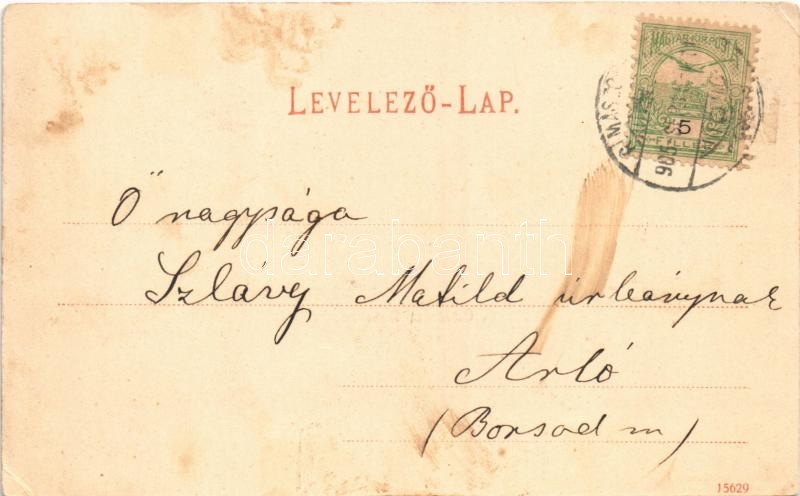 MAGYAR KIR. POSTA
5
FILLÉR
905
LEVELEZŐ-LAP.
Ő nagysága
Szlávy Matild úrleánynak
Arló
(Borsod m)
darabanth
15629